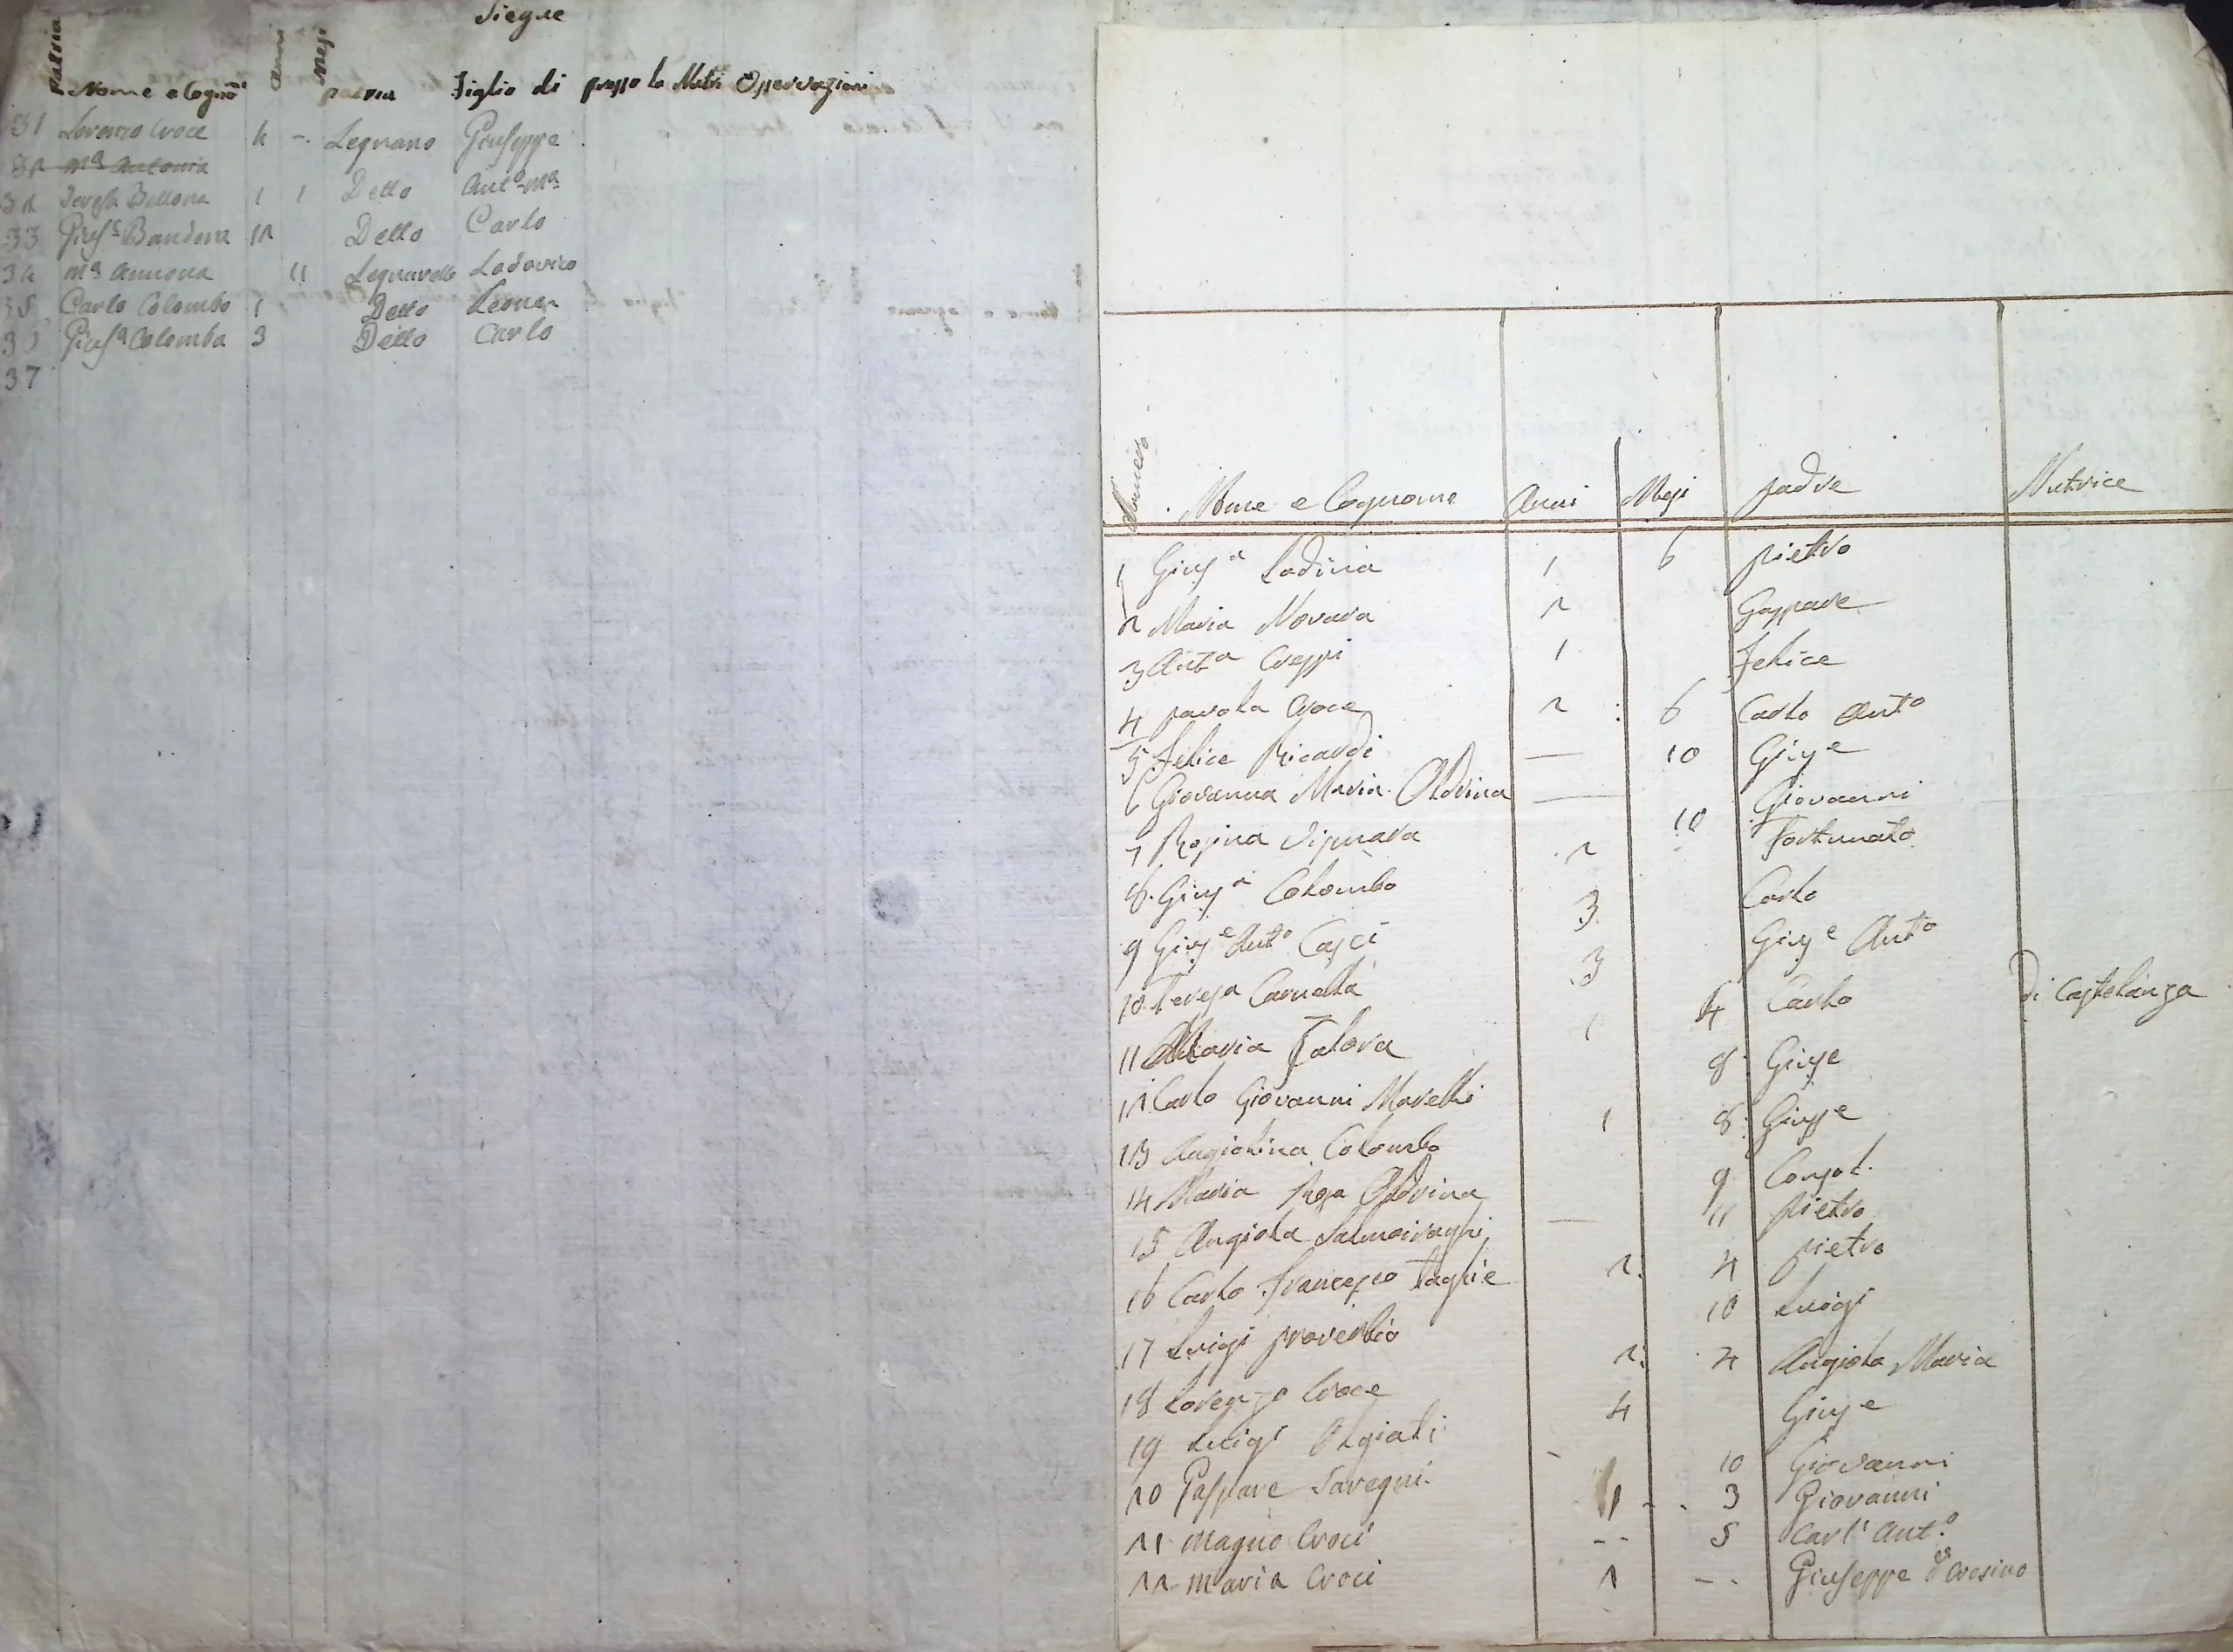 Siegue
Patria Nome e Cognome Anni Mesi patria Figlio di presso la Madre Osservazioni
31 Lorenzo Croce 4 - Legnano Giuseppe
32 Mª Antonia
32 Teresa Bellona 1 1 Detto Antº Mª
33 Giusᵉ Bandera 12 Detto Carlo
34 Mª Annona 11 Legnarello Lodovico
35 Carlo Colombo 1 Detto
36 Giusª Colomba 3 Detto Carlo
37
Numero Nome e Cognome Anni Mesi padre Nutrice
1 Giusª Ladina 1 6 pietro
2 Maria Novara 2 Gaspare
3 Antª Crespi 1 Felice
4 pavola Croce 2 6 Carlo Antº
5 Felice Ricardi — 10 Giusᵉ
6 Giovanna Maria Oldrina — 10 Giovanni
7 Rosina Vignara 2 Fortunato
8 Giusª Colombo 3 Carlo
9 Giusᵉ Antº Casci 3 Giusᵉ Antº
10 Teresa Carnella 1 4 Carlo di Castelanza
11 Maria Talora 8 Giusᵉ
12 Carlo Giovanni Morelli 1 8 Giuspᵉ
13 Angiolina Colombo 9 Consol.
14 Maria Rosa Oldrina — 11 pietro
15 Angiola Salmoiraghi 2 4 pietro
16 Carlo Francesco Taglie 10 Luigi
17 Luigi proverbio 2 4 Angiola Maria
18 Lorenzo Croce 4 Giusᵉ
19 Luigi Olgiati - 10 Giovanni
20 Gaspare Saregni 1 - 3 Giovanni
21 Magno Croci -- 5 Carl' Antº
22 Maria Croci 1 -- Giuseppe